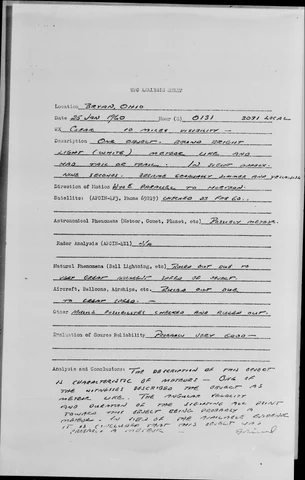 UFO ANALYSIS SHEET
Location BRYAN, OHIO
Date 25 JAN 1960 Hour (Z) 0131 2031 LOCAL
WX CLEAR 10 MILES VISIBILITY —
Description ONE OBJECT. ROUND BRIGHT
LIGHT (WHITE) METEOR LIKE AND
HAD TAIL OR TRAIL. IN SIGHT APPROX.
FOUR SECONDS. DIMMER AND
Direction of Motion W to E PARALLEL TO HORIZON.
Satellite: (AFCIN-4F3, Phone 69219) CHECKED AS PER 60.
Astronomical Phenomena (Meteor, Comet, Planet, etc) POSSIBLY METEOR.
Radar Analysis (AFCIN-4E1) N/A
Natural Phenomena (Ball Lightning, etc) RULED OUT DUE TO
VERY GREAT APPARENT SPEED OF OBJECT
Aircraft, Balloons, Airships, etc. RULED OUT DUE
TO GREAT SPEED. —
Other POSSIBILITIES CHECKED AND RULED OUT.
Evaluation of Source Reliability PROBABLY VERY GOOD —
Analysis and Conclusions: THE DESCRIPTION OF THIS OBJECT
IS CHARACTERISTIC OF METEORS — ONE OF
THE WITNESSES DESCRIBED THE OBJECT AS
METEOR LIKE. THE ANGULAR VELOCITY
AND DURATION OF THE SIGHTING ALL POINT
TOWARD THIS OBJECT BEING PROBABLY A
METEOR. IN VIEW OF THE AVAILABLE EVIDENCE
IT IS CONCLUDED THAT THIS OBJECT WAS
PROBABLY A METEOR —